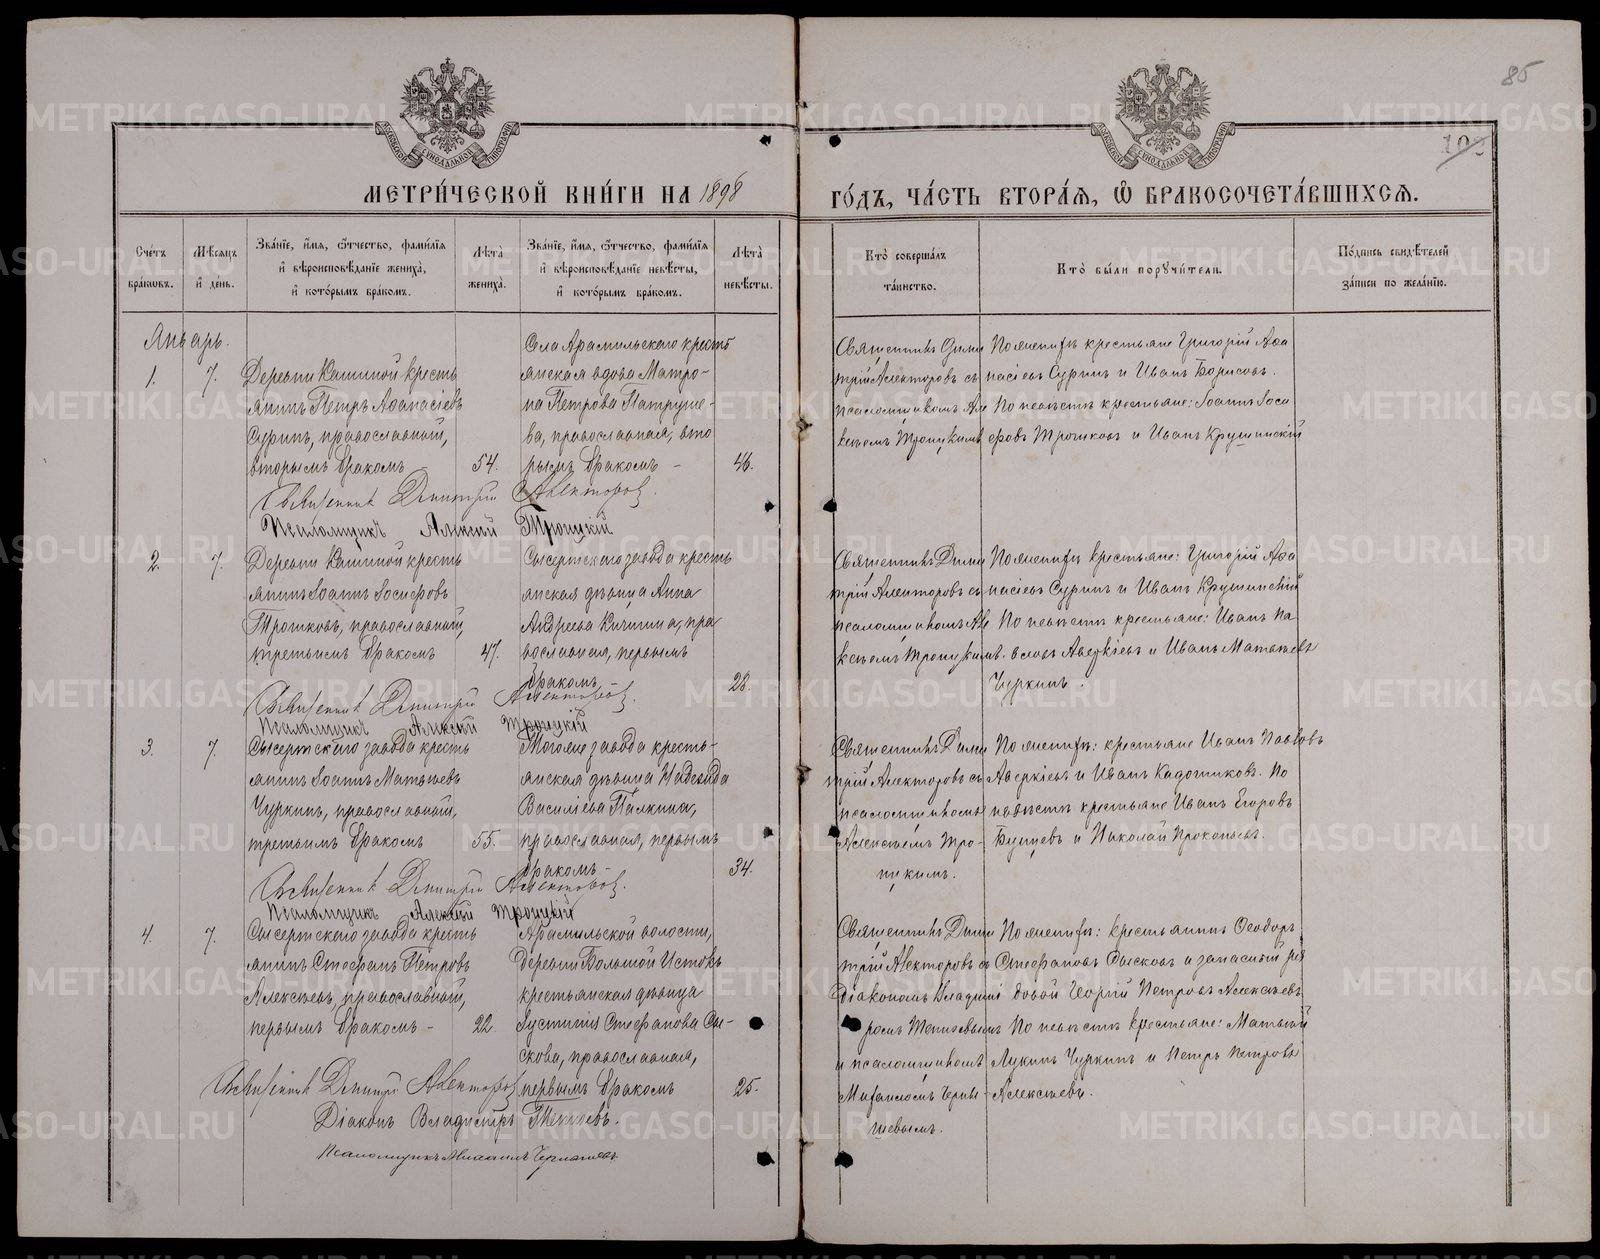 85
103
МЕТРИ́ЧЕСКОЙ КНИ́ГИ НА 1898
ГО́ДЪ, ЧА́СТЬ ВТОРА́Я, Ѿ БРАКОСОЧЕТА́ВШИХСЯ.
Сче́тъ бра́ковъ.
Мѣ́сяцъ и҆ де́нь.
Зва́нїе, и҆́мя, ѻ҆́тчество, фами́лїя
и҆ вѣроисповѣ́данїе жениха̀,
и҆ кото́рымъ бра́комъ.
Лѣта̀ жениха̀.
Зва́нїе, и҆́мя, ѻ҆́тчество, фами́лїя
и҆ вѣроисповѣ́данїе невѣ́сты,
и҆ кото́рымъ бра́комъ.
Лѣта̀ невѣ́сты.
Кто̀ соверша́лъ
та́инство.
Кто̀ бы́ли порꙋчи́тели.
По́дпись свидѣ́телей
за́писи по жела́нїю.
Январь.
1.
7.
Деревни Кашиной кресть
янинъ Петръ Аѳанасіевъ
Суринъ, православный,
вторымъ бракомъ
54.
Села Арамильскаго кресть
янская вдова Матро-
на Петрова Патруше-
ва, православная, вто
рымъ бракомъ -
46.
Священникъ Дими
трій Алекторовъ съ
псаломщикомъ Але
ксѣемъ Троицкимъ
По женихѣ крестьяне Григорій Аѳа
насіевъ Суринъ и Иванъ Борисовъ.
По невѣстѣ крестьяне: Іоаннъ Іоси
фовъ Трошковъ и Иванъ Крушинскій
Священникъ Димитрій Алекторовъ.
Псаломщикъ Алексій Троицкій
2.
7.
Деревни Кашиной кресть
янинъ Іоаннъ Іосифовъ
Трошковъ, православный,
третьимъ бракомъ
47.
Сысертскаго завода кресть
янская дѣвица Анна
Андреева Кичигина, пра
вославная, первымъ
бракомъ
28.
Священникъ Дими
трій Алекторовъ съ
псаломщикомъ Але
ксѣемъ Троицкимъ.
По женихѣ крестьяне: Григорій Аѳа
насіевъ Суринъ и Иванъ Крушинскій
По невѣстѣ крестьяне: Иванъ Па
вловъ Аверкіевъ и Иванъ Матѳеевъ
Чуркинъ.
Священникъ Димитрій Алекторовъ.
Псаломщикъ Алексій Троицкій
3.
7.
Сысертскаго завода кресть
янинъ Іоаннъ Матѳеевъ
Чуркинъ, православный,
третьимъ бракомъ
55.
Тогоже завода кресть-
янская дѣвица Надежда
Василіева Палкина,
православная, первымъ
бракомъ -
34.
Священникъ Дими
трій Алекторовъ съ
псаломщикомъ
Алексѣемъ Тро-
ицкимъ.
По женихѣ: крестьяне Иванъ Павловъ
Аверкіевъ и Иванъ Кадочниковъ. По
невѣстѣ крестьяне Иванъ Егоровъ
и Николай Прокопьевъ.
Священникъ Димитрій Алекторовъ.
Псаломщикъ Алексій Троицкій
4.
7.
Сысертскаго завода кресть
янинъ Стефанъ Петровъ
Алексѣевъ, православный,
первымъ бракомъ -
22
Арамильской волости,
деревни Большой Истокъ
крестьянская дѣвица
Іустинія Стефанова Сы-
скова, православная,
первымъ бракомъ
25.
Священникъ Дими
трій Алекторовъ съ
діакономъ Владимі
ромъ
и псаломщикомъ
Михаиломъ Черны-
шевымъ.
По женихѣ: крестьянинъ Ѳеодоръ
Стефановъ Сысковъ и запасный ря
довой Георгій Петровъ Алексѣевъ
По невѣстѣ крестьяне: Матѳей
Лукинъ Чуркинъ и Петръ Петровъ
Алексѣевъ.
Священникъ Димитрій Алекторовъ
Діаконъ Владимиръ
Псаломщикъ Михаилъ Чернышевъ
METRIKI.GASO-URAL.RU